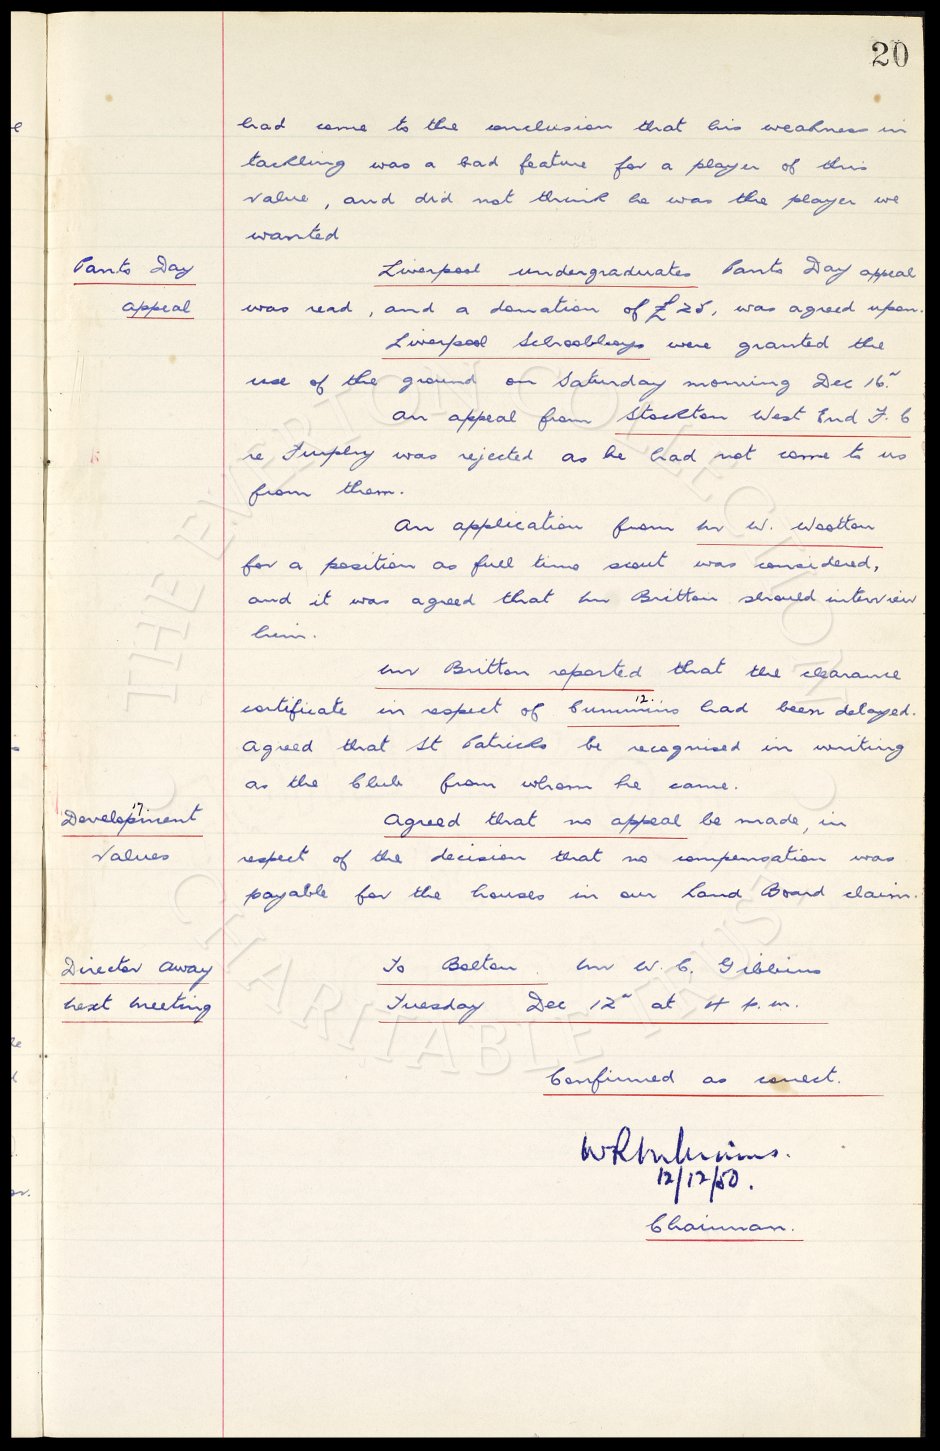 20
had come to the conclusion that his weakness in
tackling was a bad feature for a player of this
value, and did not think he was the player we
wanted
Pants Day Liverpool undergraduates Pants Day appeal
appeal was read, and a donation of £25, was agreed upon.
Liverpool Schoolboys were granted the
use of the ground on Saturday morning Dec 16.
An appeal from Stockton West End F. C
re was rejected as he had not come to us
from them.
An application from Mr W. Wootton
for a position as full time scout was considered,
and it was agreed that Mr Britton should interview
him.
Mr Britton reported that the clearance
12.
certificate in respect of Cummins had been delayed.
Agreed that St Patricks be recognised in writing
as the Club from whom he came.
17.
Development Agreed that no appeal be made, in
Values respect of the decision that no compensation was
payable for the houses in our Land Board claim.
Director Away To Bolton. Mr W. C. Gibbins
Next Meeting Tuesday Dec 12 at 4 p.m.
Confirmed as correct.
12/12/50.
Chairman.
THE EVERTON COLLECTION
CHARITABLE TRUST